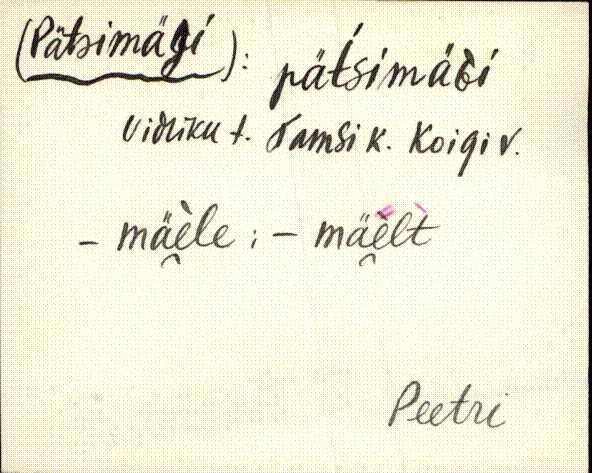 (Pätsimägi): pät́simäɢi
Vidriku t. Tamsi k. Koigi v.
- mäè̯le : - mäè̯lt
Peetri